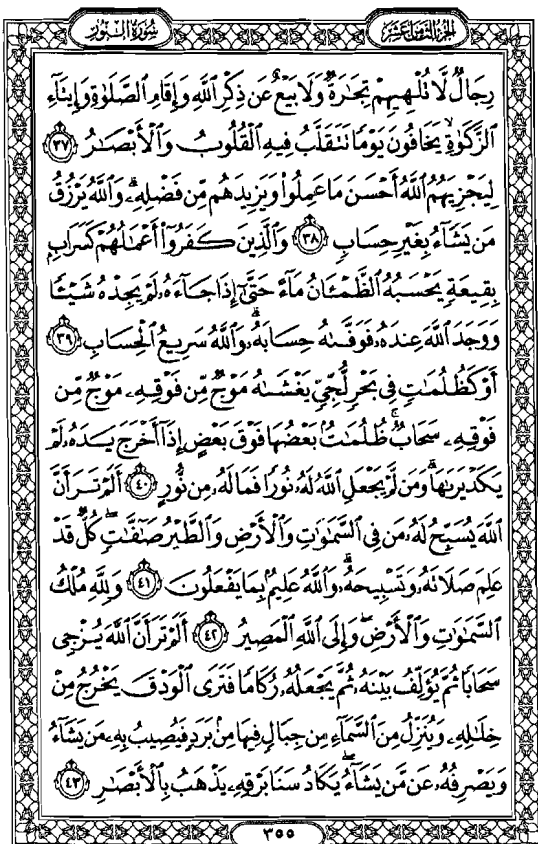 سُورَةُ النُّورِ
الجُزْءُ الثَّامِنَ عَشَرَ
رِجَالٌ لَّا تُلْهِيهِمْ تِجَٰرَةٌ وَلَا بَيْعٌ عَن ذِكْرِ ٱللَّهِ وَإِقَامِ ٱلصَّلَوٰةِ وَإِيتَآءِ
ٱلزَّكَوٰةِ يَخَافُونَ يَوْمًا تَتَقَلَّبُ فِيهِ ٱلْقُلُوبُ وَٱلْأَبْصَٰرُ ٣٧
لِيَجْزِيَهُمُ ٱللَّهُ أَحْسَنَ مَا عَمِلُوا۟ وَيَزِيدَهُم مِّن فَضْلِهِۦ وَٱللَّهُ يَرْزُقُ
مَن يَشَآءُ بِغَيْرِ حِسَابٍ ٣٨ وَٱلَّذِينَ كَفَرُوٓا۟ أَعْمَٰلُهُمْ كَسَرَابٍۭ
بِقِيعَةٍ يَحْسَبُهُ ٱلظَّمْـَٔانُ مَآءً حَتَّىٰٓ إِذَا جَآءَهُۥ لَمْ يَجِدْهُ شَيْـًٔا
وَوَجَدَ ٱللَّهَ عِندَهُۥ فَوَفَّىٰهُ حِسَابَهُۥ وَٱللَّهُ سَرِيعُ ٱلْحِسَابِ ٣٩
أَوْ كَظُلُمَٰتٍ فِى بَحْرٍ لُّجِّىٍّ يَغْشَىٰهُ مَوْجٌ مِّن فَوْقِهِۦ مَوْجٌ مِّن
فَوْقِهِۦ سَحَابٌ ظُلُمَٰتٌۢ بَعْضُهَا فَوْقَ بَعْضٍ إِذَآ أَخْرَجَ يَدَهُۥ لَمْ
يَكَدْ يَرَىٰهَا وَمَن لَّمْ يَجْعَلِ ٱللَّهُ لَهُۥ نُورًا فَمَا لَهُۥ مِن نُّورٍ ٤٠ أَلَمْ تَرَ أَنَّ
ٱللَّهَ يُسَبِّحُ لَهُۥ مَن فِى ٱلسَّمَٰوَٰتِ وَٱلْأَرْضِ وَٱلطَّيْرُ صَٰٓفَّٰتٍ كُلٌّ قَدْ
عَلِمَ صَلَاتَهُۥ وَتَسْبِيحَهُۥ وَٱللَّهُ عَلِيمٌۢ بِمَا يَفْعَلُونَ ٤١ وَلِلَّهِ مُلْكُ
ٱلسَّمَٰوَٰتِ وَٱلْأَرْضِ وَإِلَى ٱللَّهِ ٱلْمَصِيرُ ٤٢ أَلَمْ تَرَ أَنَّ ٱللَّهَ يُزْجِى
سَحَابًا ثُمَّ يُؤَلِّفُ بَيْنَهُۥ ثُمَّ يَجْعَلُهُۥ رُكَامًا فَتَرَى ٱلْوَدْقَ يَخْرُجُ مِنْ
خِلَٰلِهِۦ وَيُنَزِّلُ مِنَ ٱلسَّمَآءِ مِن جِبَالٍ فِيهَا مِنۢ بَرَدٍ فَيُصِيبُ بِهِۦ مَن يَشَآءُ
وَيَصْرِفُهُۥ عَن مَّن يَشَآءُ يَكَادُ سَنَا بَرْقِهِۦ يَذْهَبُ بِٱلْأَبْصَٰرِ ٤٣
٣٥٥